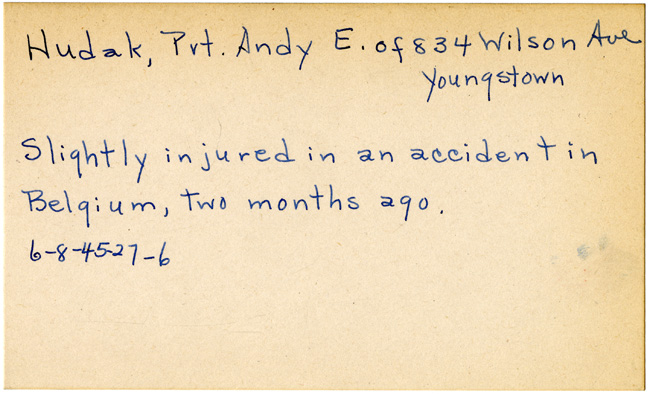 Hudak, Pvt. Andy E. of 834 Wilson Ave
Youngstown
Slightly injured in an accident in
Belgium, two months ago.
6-8-45-27-6